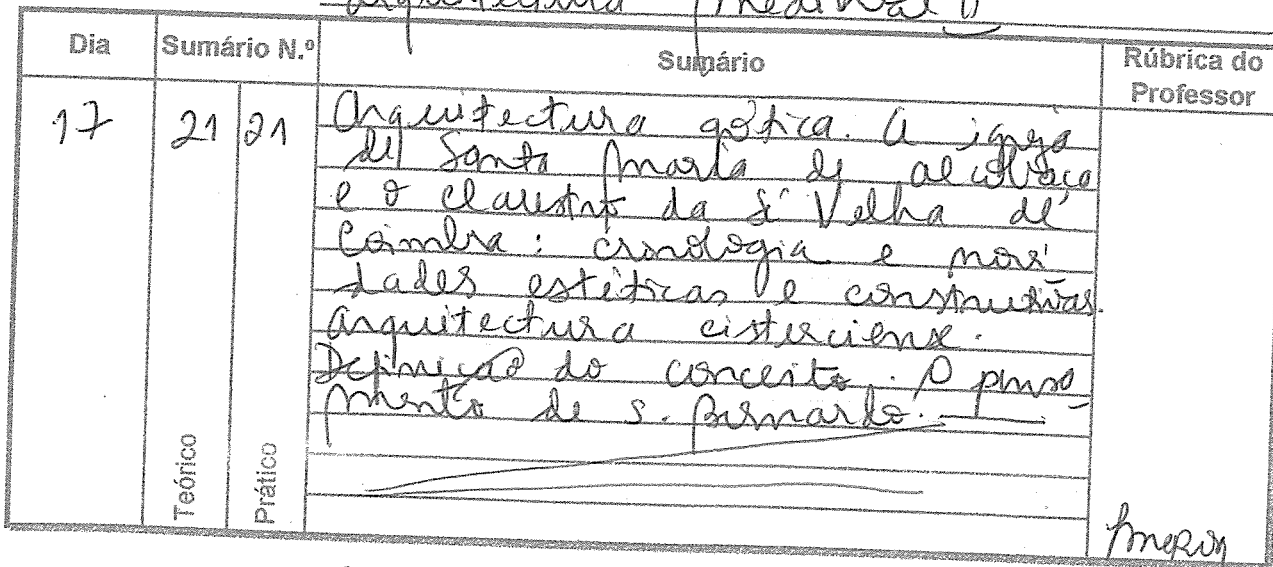 arquitectura medieval
Dia Sumário N.º Sumário Rúbrica do Professor
17 21 21 Arquitectura gótica. A igreja
de Santa Maria de Alcobaça
e o claustro da Sé Velha de
Coimbra: cronologia e novi
dades estéticas e construtivas.
arquitectura cisterciense.
Definição do conceito. O pensa-
mento de S. Bernardo.
Teórico Prático